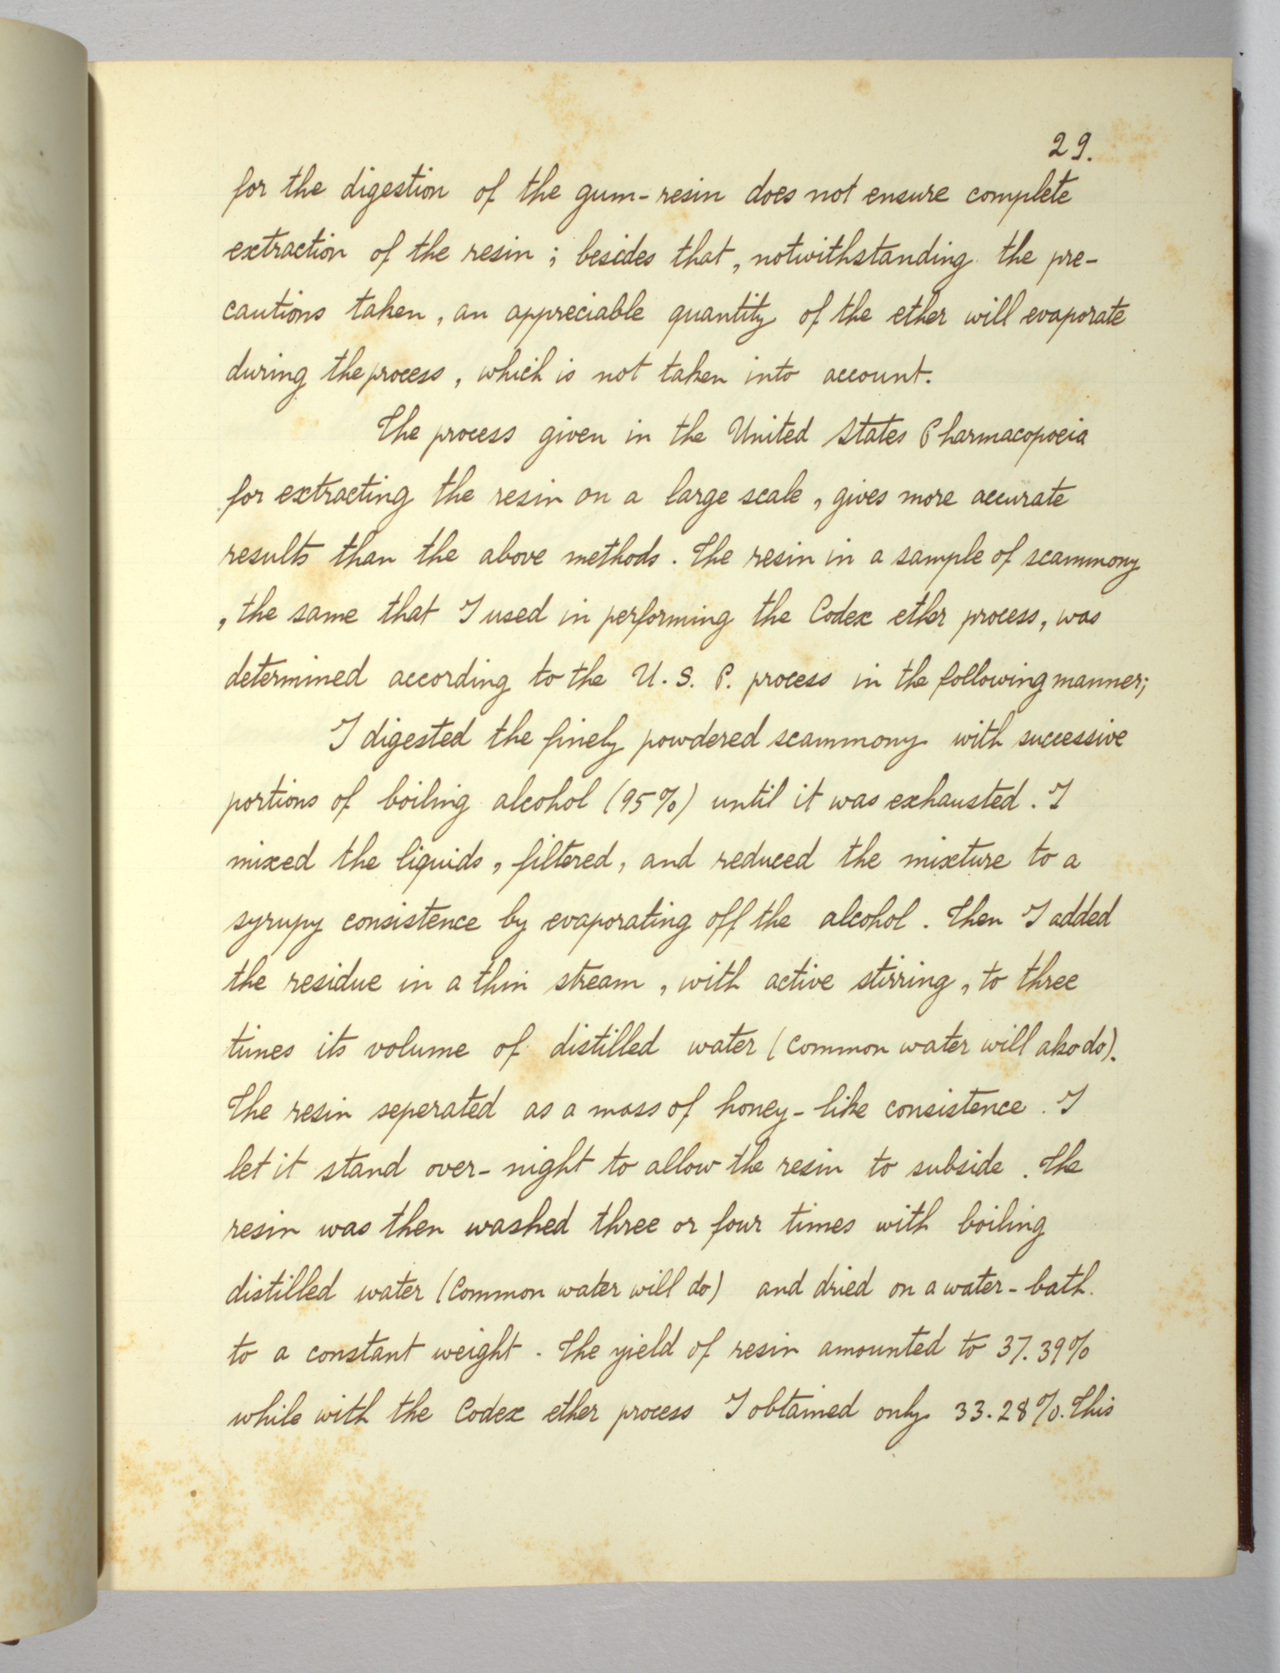 29.
for the digestion of the gum-resin does not ensure complete
extraction of the resin ; besides that, notwithstanding the pre-
cautions taken, an appreciable quantity of the ether will evaporate
during the process, which is not taken into account.
The process given in the United States Pharmacopoeia
for extracting the resin on a large scale, gives more accurate
results than the above methods. The resin in a sample of scammony
, the same that I used in performing the Codex ether process, was
determined according to the U. S. P. process in the following manner;
I digested the finely powdered scammony with successive
portions of boiling alcohol (95%) until it was exhausted. I
mixed the liquids, filtered, and reduced the mixture to a
syrupy consistence by evaporating off the alcohol. Then I added
the residue in a thin stream, with active stirring, to three
times its volume of distilled water (Common water will also do).
The resin seperated as a mass of honey-like consistence. I
let it stand over-night to allow the resin to subside. The
resin was then washed three or four times with boiling
distilled water (Common water will do) and dried on a water-bath.
to a constant weight. The yield of resin amounted to 37.39%
while with the Codex ether process I obtained only 33.28%. This